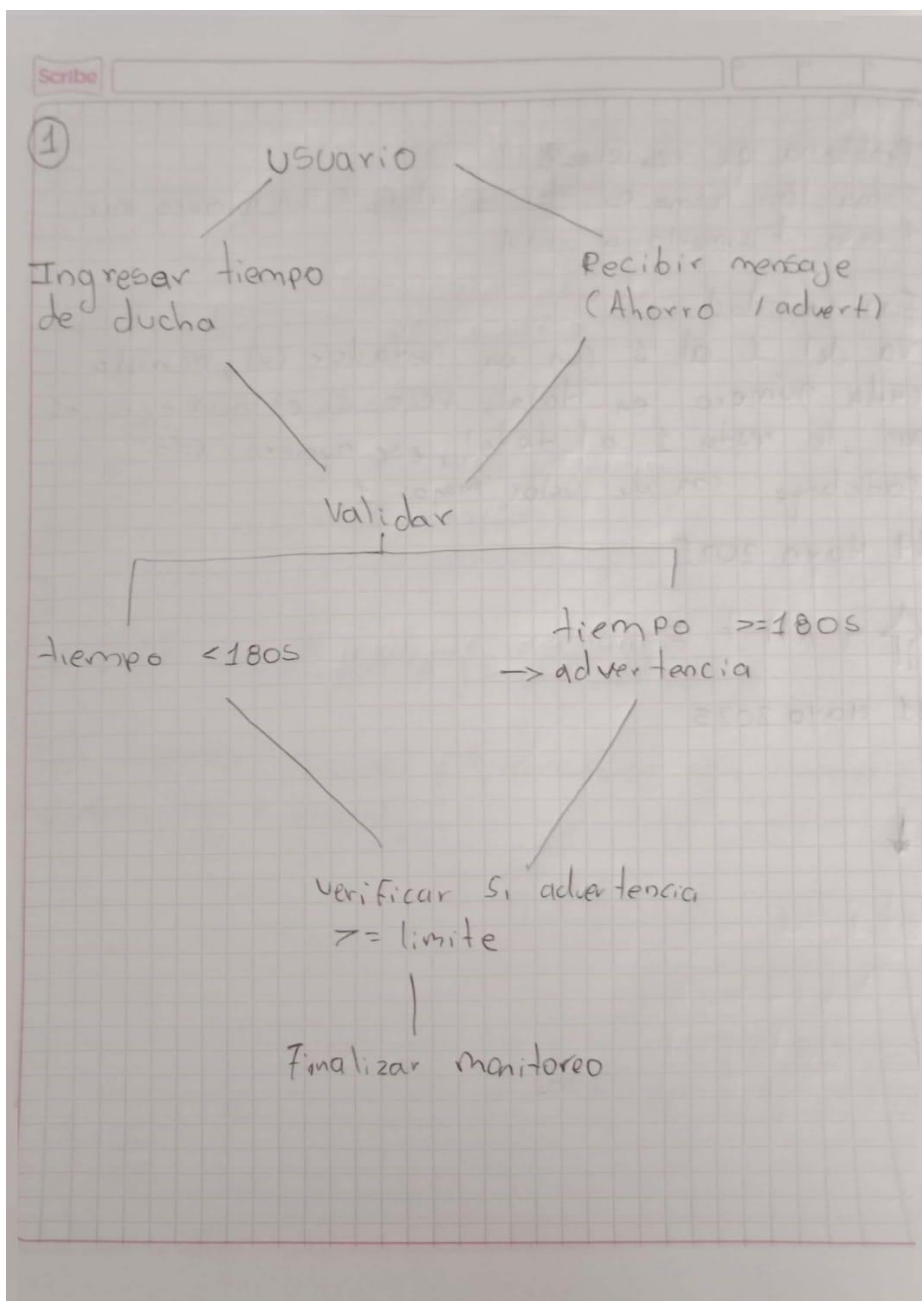 Scribe
1
usuario
Ingresar tiempo
de ducha
Recibir mensaje
(Ahorro / advert)
Validar
tiempo <180s
tiempo >=180s
-> advertencia
verificar si advertencia
>= limite
Finalizar monitoreo